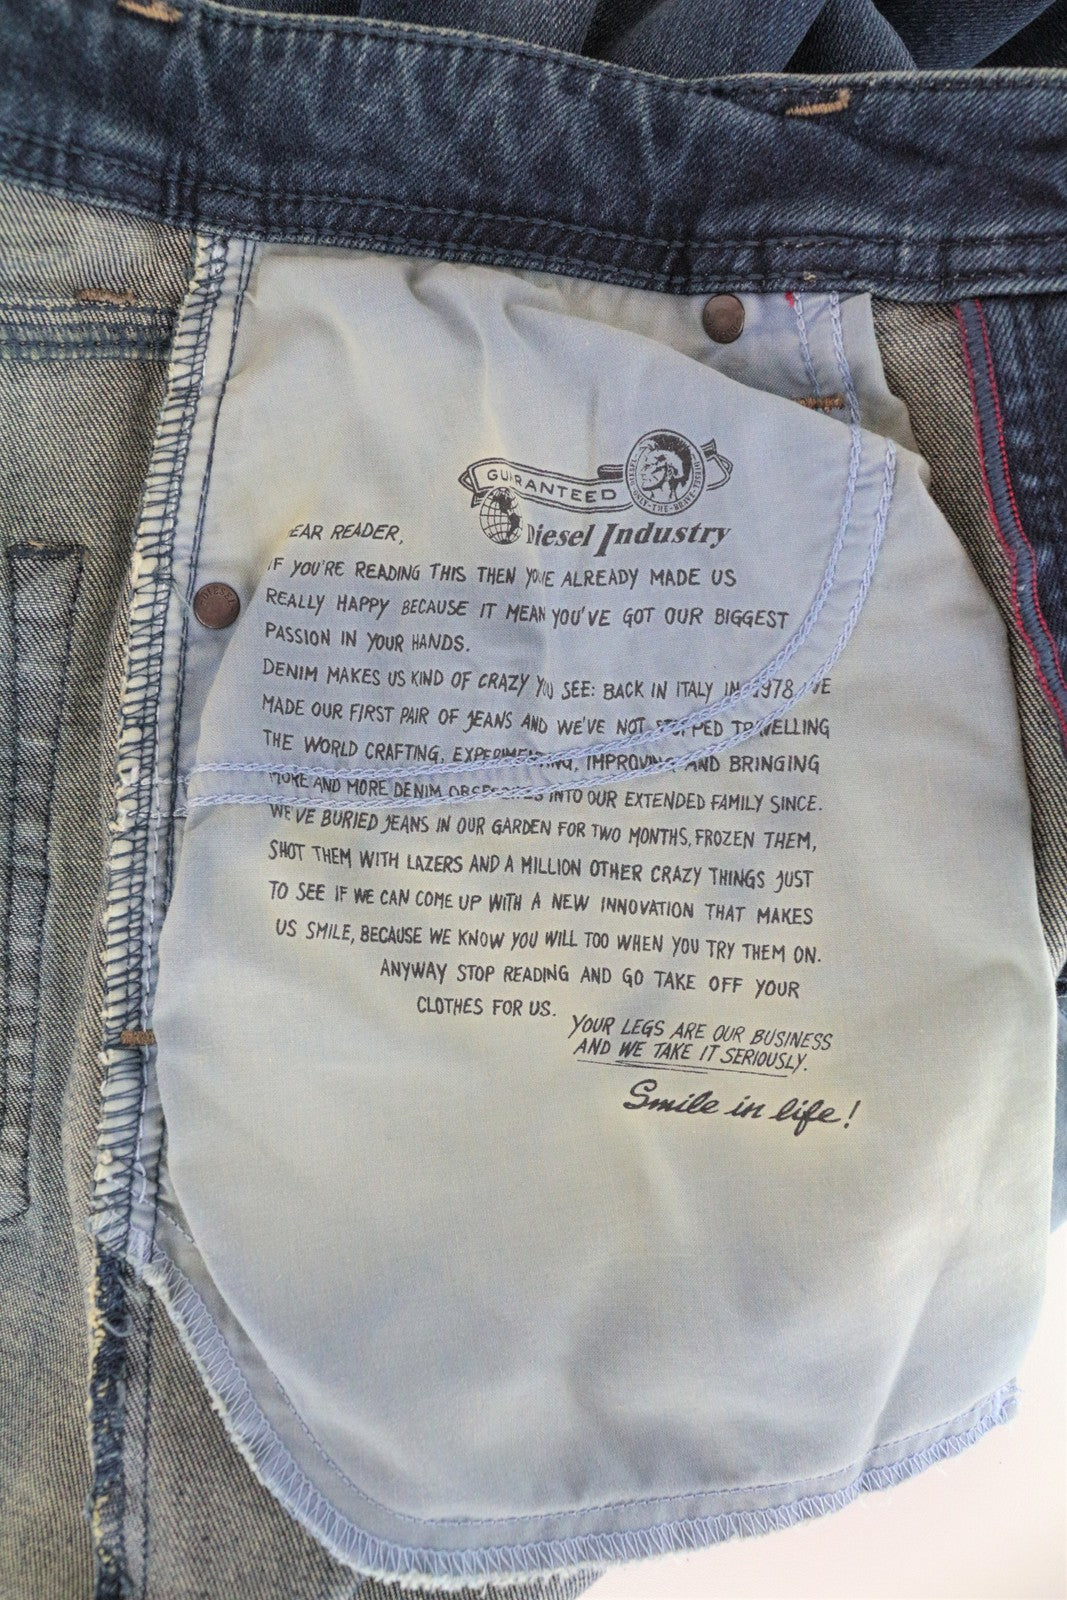 GUARANTEED
DIESEL
ONLY-THE-BRAVE
Diesel Industry
EAR READER,
IF YOU'RE READING THIS THEN YOU'VE ALREADY MADE US
REALLY HAPPY BECAUSE IT MEAN YOU'VE GOT OUR BIGGEST
PASSION IN YOUR HANDS.
DENIM MAKES US KIND OF CRAZY YOU SEE: BACK IN ITALY IN 1978 WE
MADE OUR FIRST PAIR OF JEANS AND WE'VE NOT STOPPED TRAVELLING
THE WORLD CRAFTING, EXPERIMENTING, IMPROVING AND BRINGING
MORE AND MORE DENIM OBSESSIVES INTO OUR EXTENDED FAMILY SINCE.
WE'VE BURIED JEANS IN OUR GARDEN FOR TWO MONTHS, FROZEN THEM,
SHOT THEM WITH LAZERS AND A MILLION OTHER CRAZY THINGS JUST
TO SEE IF WE CAN COME UP WITH A NEW INNOVATION THAT MAKES
US SMILE, BECAUSE WE KNOW YOU WILL TOO WHEN YOU TRY THEM ON.
ANYWAY STOP READING AND GO TAKE OFF YOUR
CLOTHES FOR US.
YOUR LEGS ARE OUR BUSINESS
AND WE TAKE IT SERIOUSLY.
Smile in life!
DIESEL